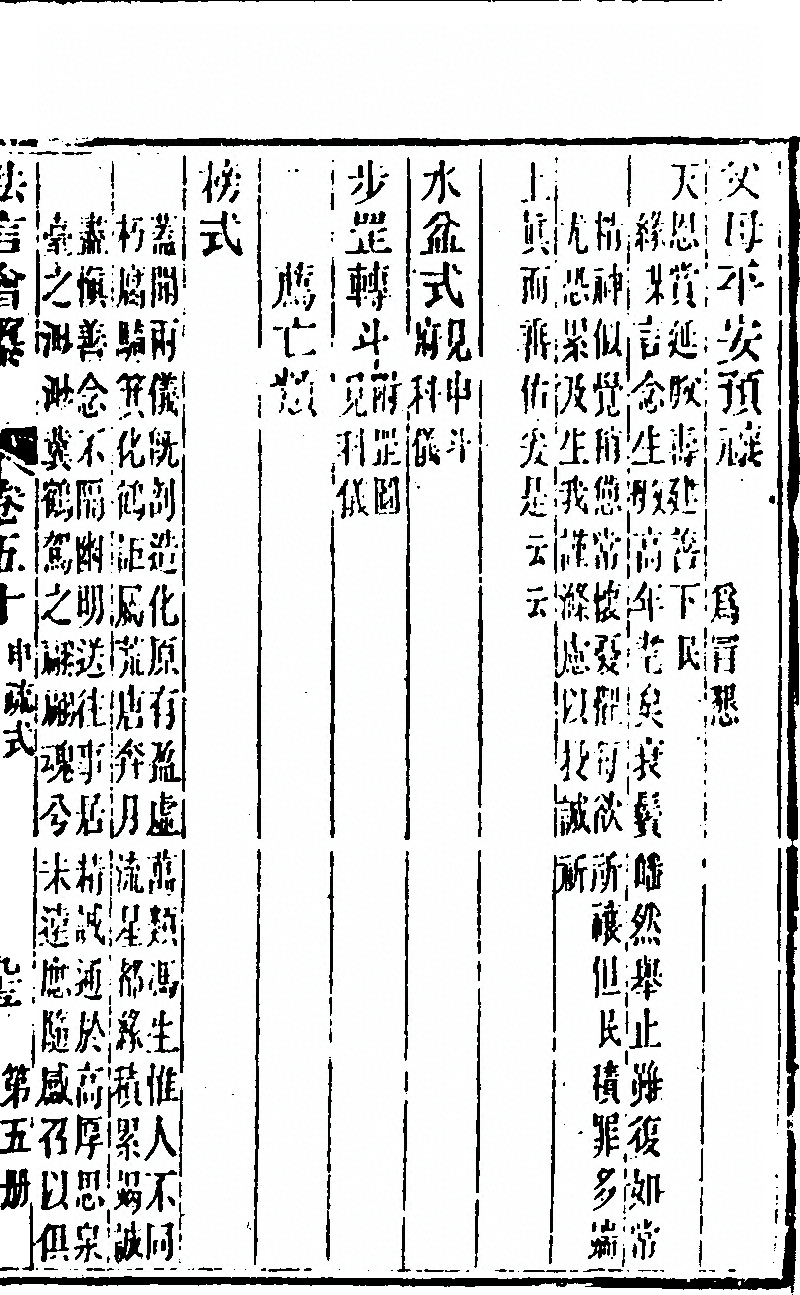 父母平安預禳 爲旨懇
天恩賞延攸壽建善下民
緣某言念生攸高年耄矣衰鬢皤然舉止雖復如常
精神似覺稍憊常懷憂懼每欲所禳但民積罪多端
尤恐累及生我謹滌慮以投誠祈
上眞而 佑爰是云云
水盆式 見申斗
府科儀
步罡轉斗 附罡圖
見科儀
薦亡類
榜式
蓋聞兩儀旣剖造化原有盈虛萬類馮生惟人不同
朽腐騎箕化鶴詎屬荒唐奔月流星都緣積累竭誠
盡愼善念不隔幽明送往事居精誠通於高厚思泉
臺之渺渺冀鶴駕之翩翩魂兮未遠應隨感召以俱
法言會纂 卷五十 申疏式 第五册